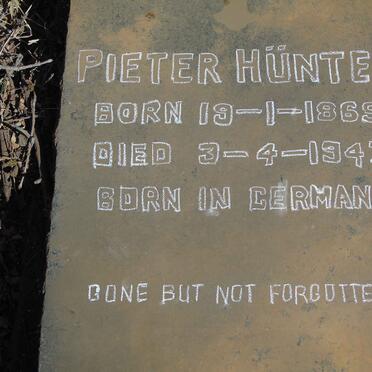 PIETER HÜNTE
BORN 19-1-1869
DIED 3-4-194
BORN IN GERMAN
GONE BUT NOT FORGOTTE